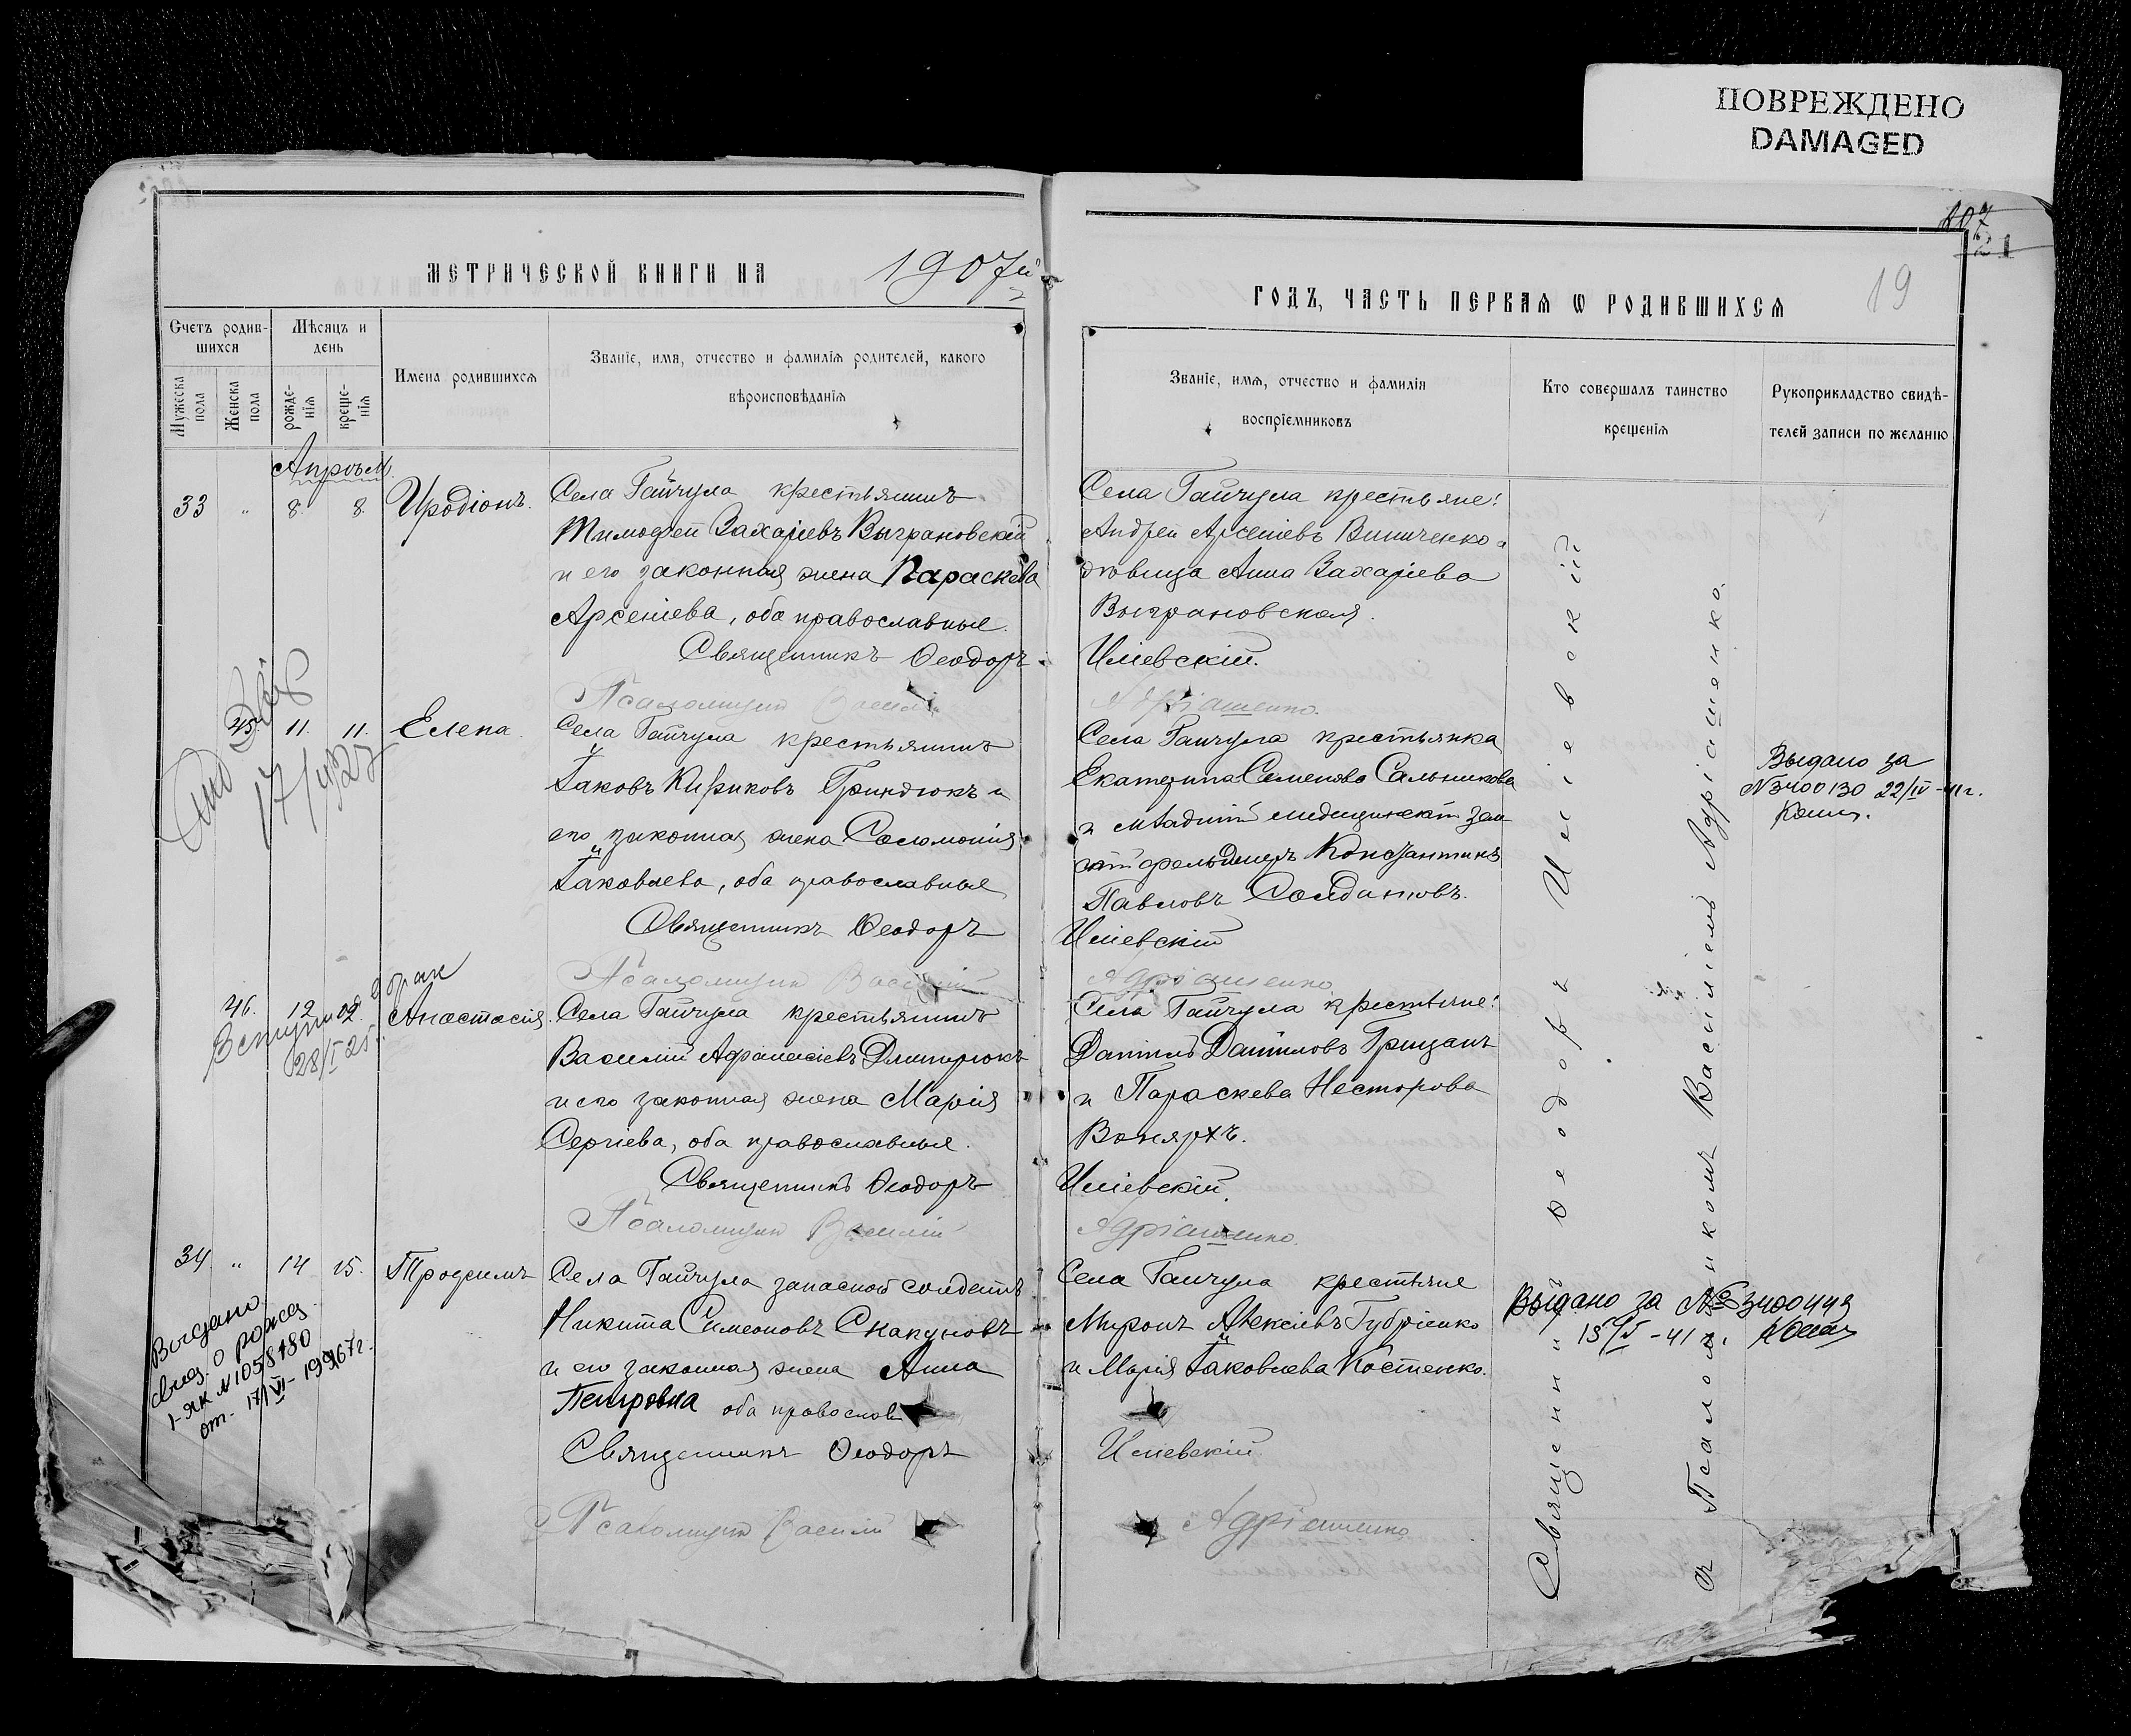 ПОВРЕЖДЕНО
DAMAGED
107
19
МЕТРИЧЕСКОЙ КНИГИ НА 1907й
ГОДЪ, ЧАСТЬ ПЕРВАЯ Ѡ РОДИВШИХСЯ
Счетъ родив-
шихся
Мужеска пола
Женска пола
Мѣсяцъ и
день
рожде-
нія
креще-
нія
Имена родившихся
Званіе, имя, отчество и фамилія родителей, какого
вѣроисповѣданія
Званіе, имя, отчество и фамилія
воспріемниковъ
Кто совершалъ таинство
крещенія
Рукоприкладство свидѣ-
телей записи по желанію
33 " 8. 8. Иродіонъ.
Села Гайчула крестьянинъ
Тимофей Захаріевъ Выграновскій
и его законная жена Параскева
Арсеніева, оба православные.
Священникъ Ѳеодоръ
Псаломщикъ Василій
Села Гайчула крестьяне:
Андрей Арсеніевъ Винниченко и
дѣвица Анна Захаріева
Выграновская.
Иліевскій.
Адріашенко.
17/
45. 11. 11. Елена.
Села Гайчула крестьянинъ
Іаковъ Кириковъ Гриндюкъ и
его законная жена Соломонія
Іаковлева, оба православные
Священникъ Ѳеодоръ
Псаломщикъ Василій
Села Гайчула крестьянка
Екатерина Семенова Сальникова
и младшій медицинскій
фельдшеръ Константинъ
Павловъ Солдатовъ.
Иліевскій
Адріашенко
Выдано за
N3400130 22/IV-41г.
46. 12 Анастасія.
Вступи брак
28/I 25
Села Гайчула крестьянинъ
Василій Афанасіевъ Дмитрюкъ
и его законная жена Марія
Сергіева, оба православные.
Священникъ Ѳеодоръ
Псаломщикъ Василій
Села Гайчула крестьяне:
Даніилъ Даніиловъ Грицанъ
и Параскева Несторова
Иліевскій.
Адріашенко.
34 " 14 15. Трофимъ
Выдано
свид. о рожд.
I-ЯК N 1058180
от. 17/VI-1967г.
Села Гайчула запасной солдатъ
Никита Симеоновъ Скакуновъ
и его законная жена Анна
Петровна оба православ
Священникъ Ѳеодоръ
Псаломщикъ Василій
Села Гайчула крестьяне
Миронъ Алексіевъ Губріенко
и Марія Іаковлева Костенко.
Иліевскій
Адріашенко
Выдано за №3400449
Священникъ Ѳеодоръ Иліевскій
съ Псаломщикомъ Василіемъ Адріашенко.